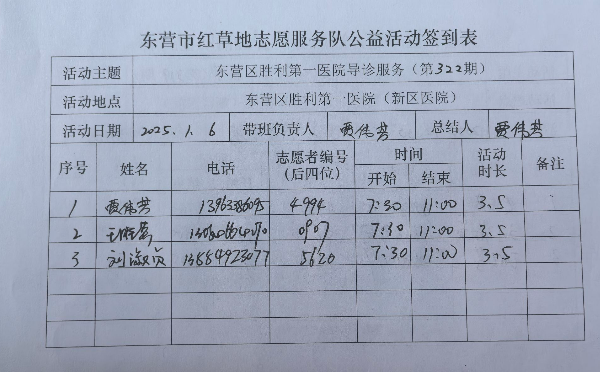 东营市红草地志愿服务队公益活动签到表
活动主题 东营区胜利第一医院导诊服务（第322期）
活动地点 东营区胜利第一医院（新区医院）
活动日期 2025.1.6 带班负责人 贾伟芳 总结人 贾伟芳
序号 姓名 电话 志愿者编号（后四位） 时间 活动时长 备注
开始 结束
1 贾伟芳 4994 7:30 11:00 3.5
2 0907 7:30 11:00 3.5
3 刘淑贞 13884923077 5620 7:30 11:00 3.5